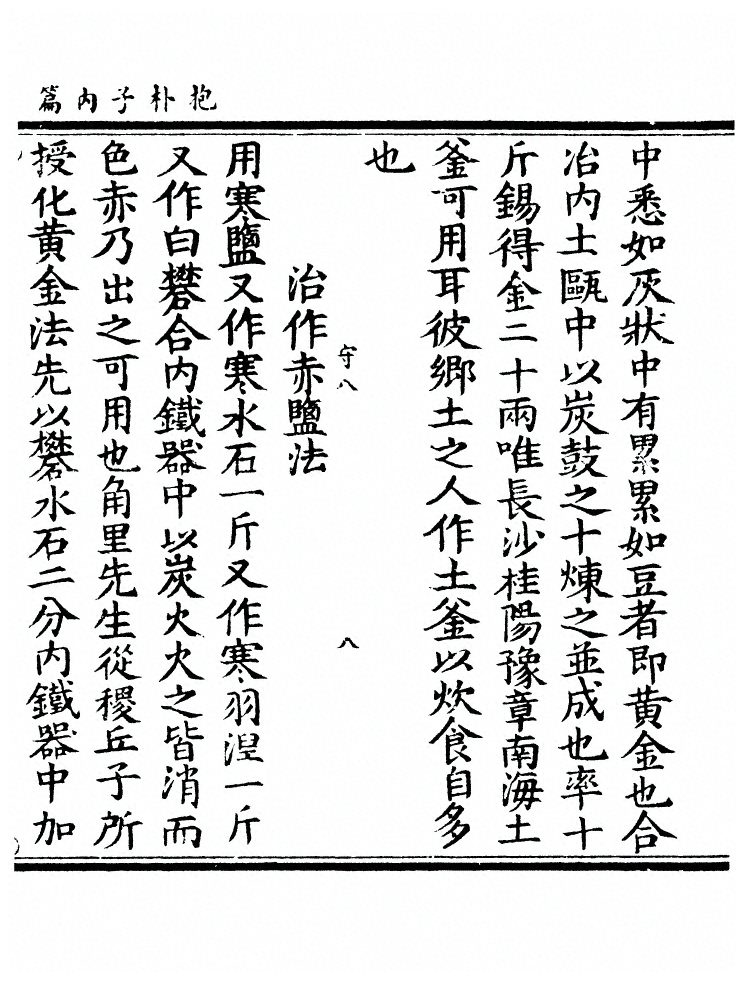 抱朴子內篇
中悉如灰狀中有累累如豆者即黃金也合
治內土甌中以炭鼓之十煉之並成也率十
斤錫得金二十兩唯長沙桂陽豫章南海土
釜可用耳彼鄉土之人作土釜以炊食自多
也
守八
八
治作赤鹽法
用寒鹽又作寒水石一斤又作寒羽涅一斤
又作白礬合內鐵器中以炭火火之皆消而
色赤乃出之可用也角里先生從稷丘子所
授化黃金法先以礬水石二分內鐵器中加